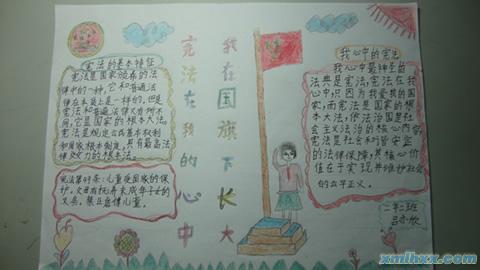 宪法的基本特征
宪法是国家颁布的法
律中的一种,它和普通法
律在本质上是一样的,但是
宪法和普通法律又有所不
同,它是国家的根本大法。
宪法是规定公民基本权利
和国家根本制度,具有最高法
律效力的根本法。
宪法第49条:儿童受国家的保
护。父母有抚养未成年子女的
义务。禁止虐待儿童。
宪法在我的心中
我在国旗下长大
我心中的宪法
我心中最神圣的
法典是宪法,宪法在我
心中,只因为我爱我的国
家,而宪法是国家的根
本大法,依法治国是社
会主义法治的核心内容
宪法是社会和谐安定
的法律保障,其核心价
值在于实现并维护社会
的公平正义。
二年二班
xmlhxx.com